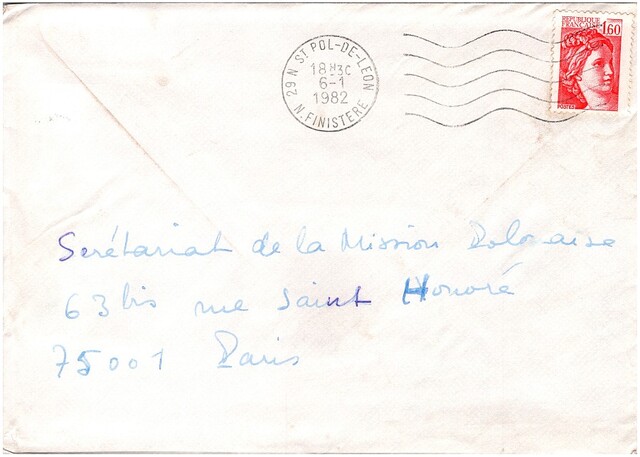 29 N ST POL-DE-LEON
18H30
6-1
1982
N. FINISTERE
REPUBLIQUE
FRANCAISE
1,60
POSTES
Serétariat de la Mission Polonaise
63 bis rue Saint Honoré
75001 Paris